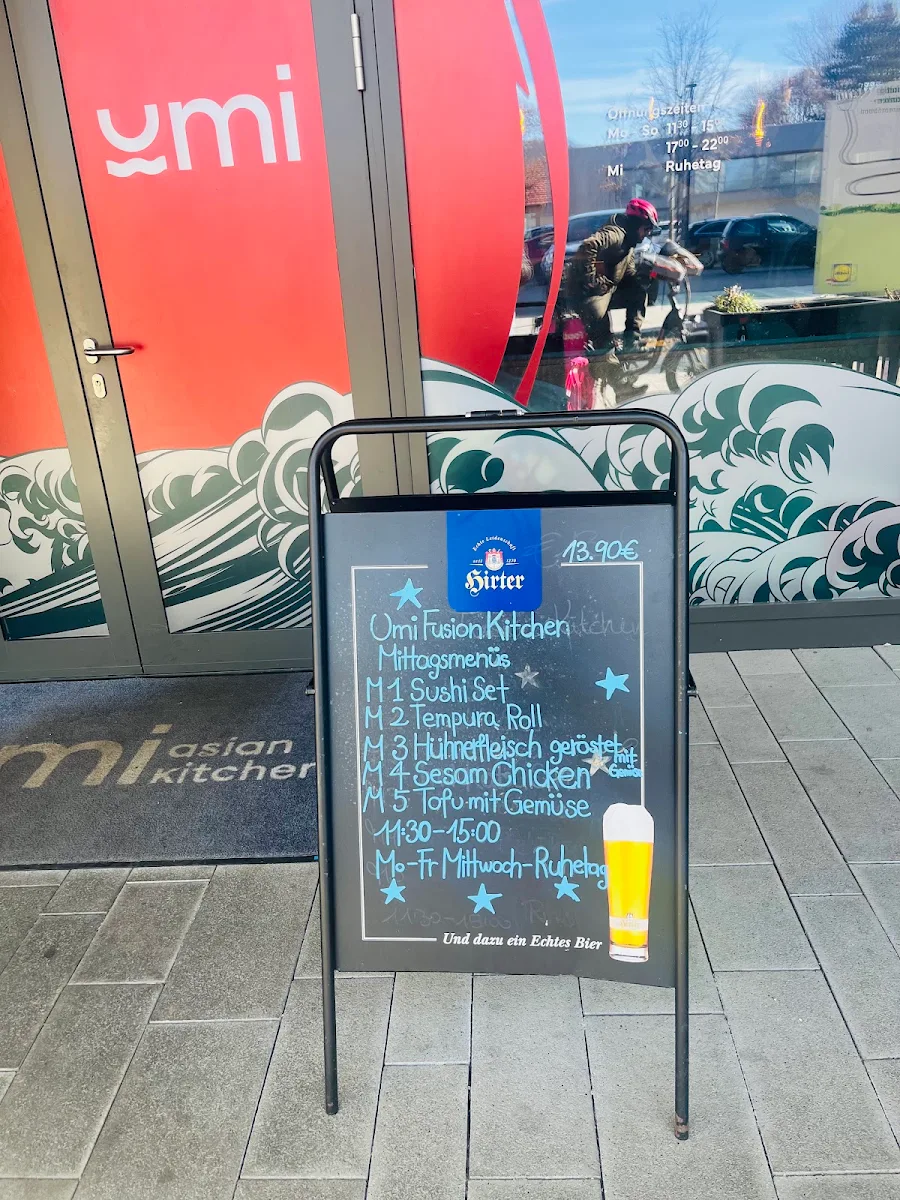 umi
Öffnungszeiten
Mo - So 11³⁰ - 15⁰⁰
17⁰⁰ - 22⁰⁰
Mi Ruhetag
Echte Leidenschaft
seit 1270
Hirter
13.90€
Umi Fusion Kitchen
Mittagsmenüs
M 1 Sushi Set
M 2 Tempura Roll
M 3 Hühnerfleisch geröstet mit Gemüse
M 4 Sesam Chicken
M 5 Tofu mit Gemüse
11:30-15:00
Mo-Fr Mittwoch-Ruhetag
Und dazu ein Echtes Bier
mi asian
kitchen